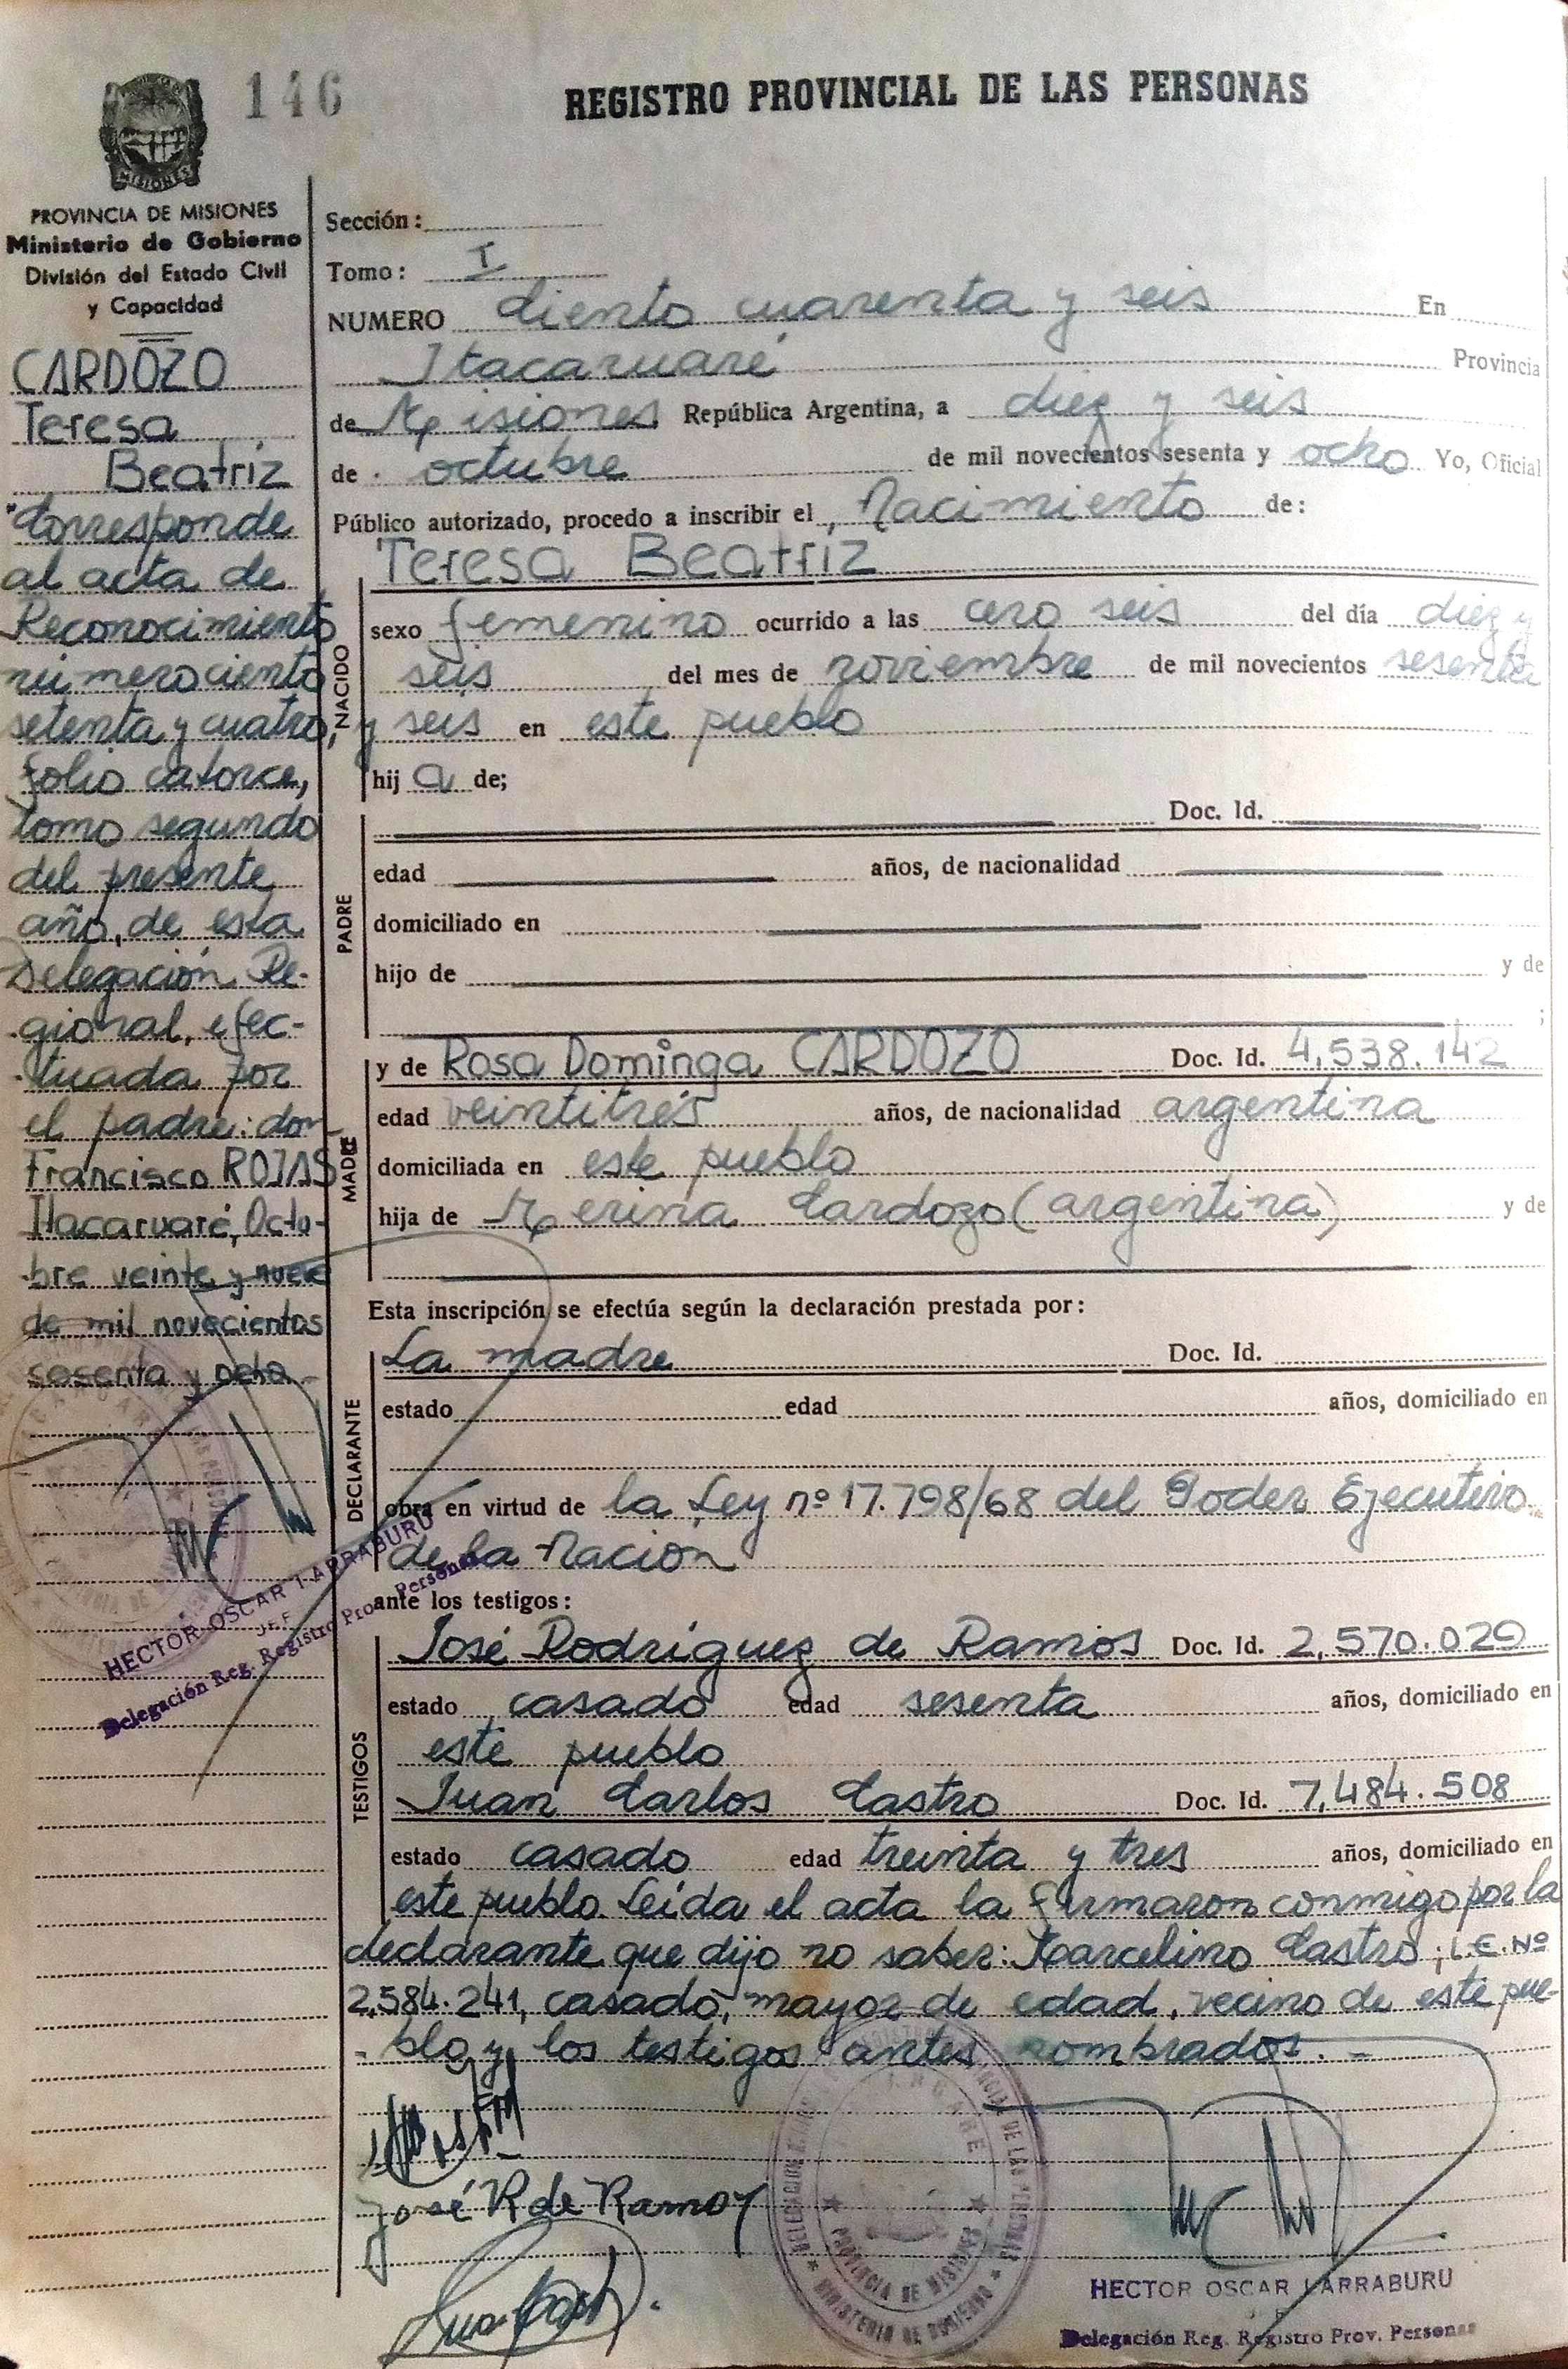 146
REGISTRO PROVINCIAL DE LAS PERSONAS
MISIONES
PROVINCIA DE MISIONES
Ministerio de Gobierno
División del Estado Civil
y Capacidad
CARDOZO
Teresa
Beatriz
Corresponde
al acta de
Reconocimiento
número ciento
setenta y cuatro,
folio catorce,
tomo segundo
del presente
año, de esta
Delegación Re-
gional, efec-
tuada por
el padre: don
Francisco ROJAS
Itacaruaré, Octu-
bre veinte y nueve
de mil novecientos
sesenta y ocho
HECTOR OSCAR LARRABURU
JEFE
Delegación Reg. Registro Prov. Personas
Sección:
Tomo: I
NUMERO Ciento cuarenta y seis En
Itacaruaré Provincia
de Misiones República Argentina, a diez y seis
de octubre de mil novecientos sesenta y ocho Yo, Oficial
Público autorizado, procedo a inscribir el Nacimiento de:
Teresa Beatriz
NACIDO
sexo femenino ocurrido a las cero seis del día diez y
seis del mes de noviembre de mil novecientos sesenta
y seis en este pueblo
hij a de;
PADRE
Doc. Id.
edad años, de nacionalidad
domiciliado en
hijo de y de
;
MADRE
y de Rosa Dominga CARDOZO Doc. Id. 4,538.142
edad veintitrés años, de nacionalidad argentina
domiciliada en este pueblo
hija de Merina Cardozo (argentina) y de
Esta inscripción se efectúa según la declaración prestada por:
DECLARANTE
La madre Doc. Id.
estado edad años, domiciliado en
obra en virtud de la Ley nº 17.798/68 del Poder Ejecutivo
de la Nación
ante los testigos:
TESTIGOS
José Rodríguez de Ramos Doc. Id. 2,570.029
estado casado edad sesenta años, domiciliado en
este pueblo
Juan Carlos Castro Doc. Id. 7,484.508
estado casado edad treinta y tres años, domiciliado en
este pueblo. Leída el acta la firmaron conmigo por la
declarante que dijo no saber: Marcelino Castro; L.E. Nº
2,584.241, casado, mayor de edad, vecino de este pue-
blo y los testigos antes nombrados. -
José R de Ramos
PROVINCIA DE MISIONES
MINISTERIO DE GOBIERNO
HECTOR OSCAR LARRABURU
Delegación Reg. Registro Prov. Personas